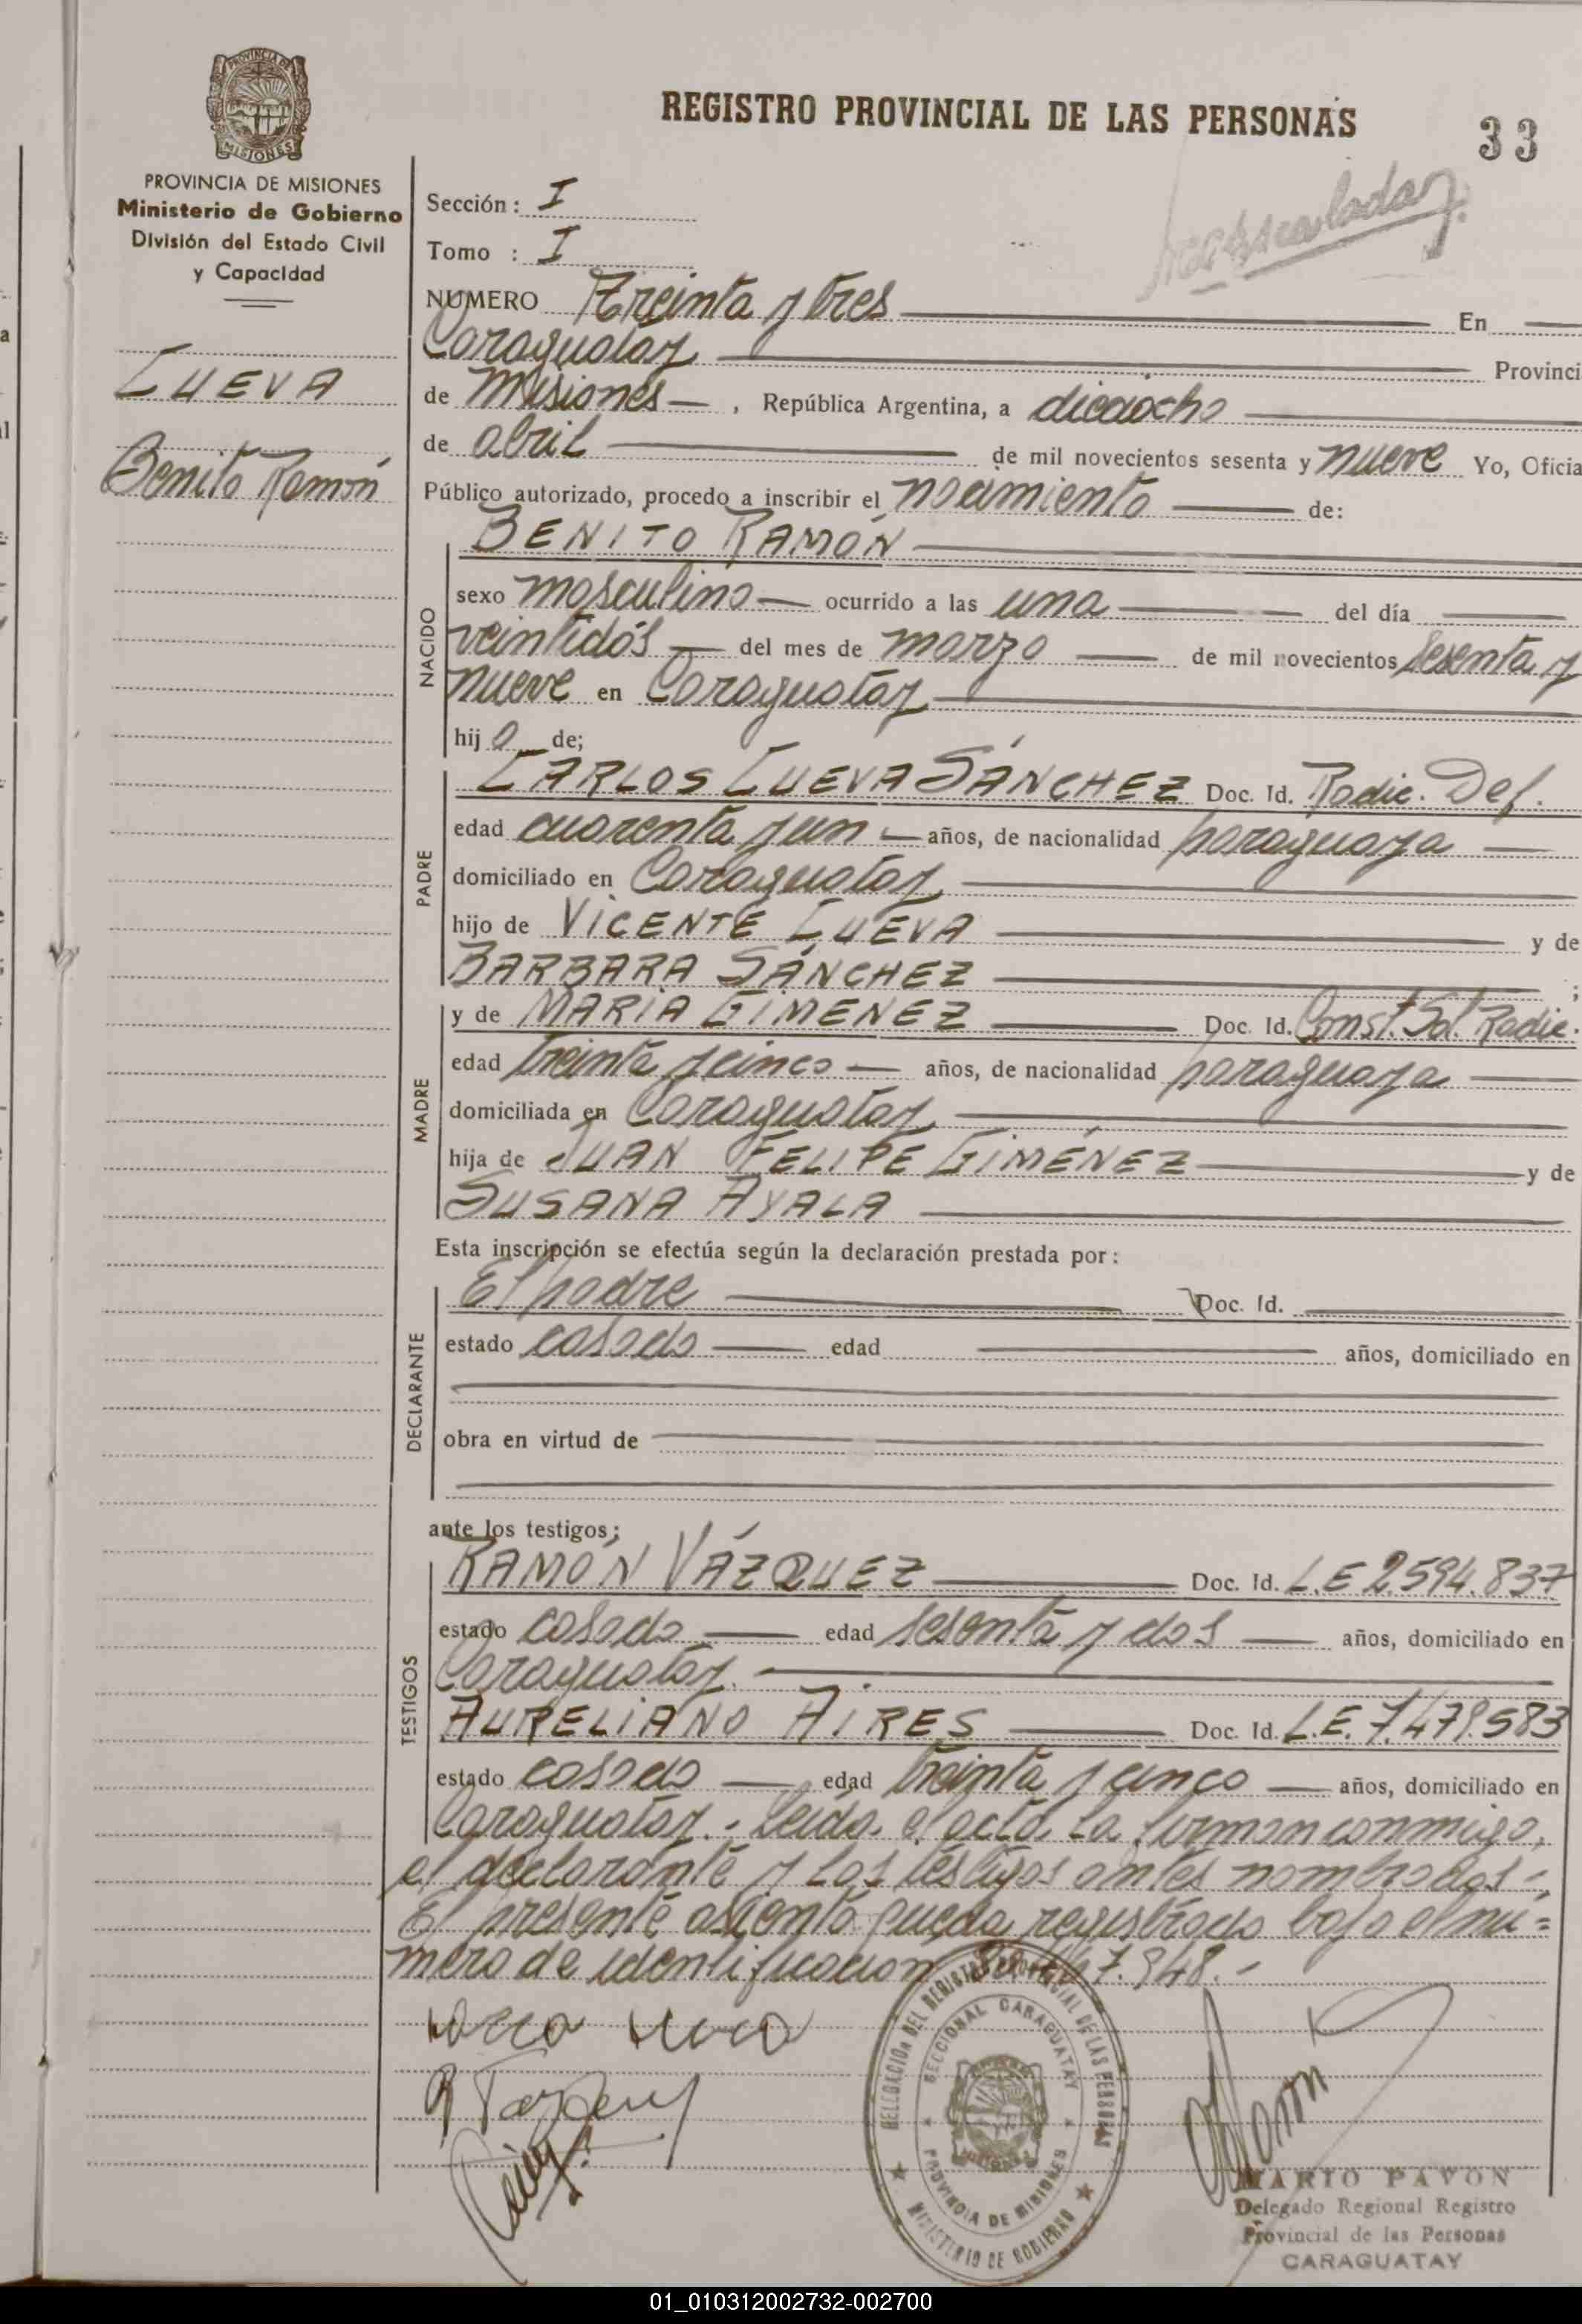 REGISTRO PROVINCIAL DE LAS PERSONAS
33
PROVINCIA DE MISIONES
Ministerio de Gobierno
División del Estado Civil
y Capacidad
CUEVA
Benito Ramón
Sección: I
Tomo : I
NUMERO Treinta y tres En
Caraguatay Provinci
de Misiones , República Argentina, a dieciocho
de abril de mil novecientos sesenta y nueve Yo, Oficia
Público autorizado, procedo a inscribir el nacimiento de:
BENITO RAMÓN
NACIDO
sexo masculino ocurrido a las una del día
veintidós del mes de marzo de mil novecientos sesenta y
nueve en Caraguatay
hijo de;
PADRE
CARLOS CUEVA SÁNCHEZ Doc. Id. Radic. Def.
edad cuarenta y un años, de nacionalidad paraguaya
domiciliado en Caraguatay
hijo de VICENTE CUEVA y de
BARBARA SÁNCHEZ ;
MADRE
y de MARÍA GIMENEZ Doc. Id. Const. Sol. Radic.
edad treinta y cinco años, de nacionalidad paraguaya
domiciliada en Caraguatay
hija de JUAN FELIPE GIMÉNEZ y de
SUSANA AYALA
Esta inscripción se efectúa según la declaración prestada por:
DECLARANTE
El padre Doc. Id.
estado casado edad años, domiciliado en
obra en virtud de
ante los testigos;
TESTIGOS
RAMÓN VÁZQUEZ Doc. Id. L.E 2.594.837
estado casado edad sesenta y dos años, domiciliado en
Caraguatay.
AURELIANO AIRES Doc. Id. L.E. 7.479.583
estado casado edad treinta y cinco años, domiciliado en
Caraguatay.- Leída el acta la firman conmigo,
el declarante y los testigos antes nombrados.-
El presente asiento queda registrado bajo el nú=
mero de identificación 7.948.-
DELEGACION DEL REGISTRO PROVINCIAL DE LAS PERSONAS
SECCIONAL CARAGUATAY
PROVINCIA DE MISIONES
MINISTERIO DE GOBIERNO
MARIO PAVON
Delegado Regional Registro
Provincial de las Personas
CARAGUATAY
01_010312002732-002700